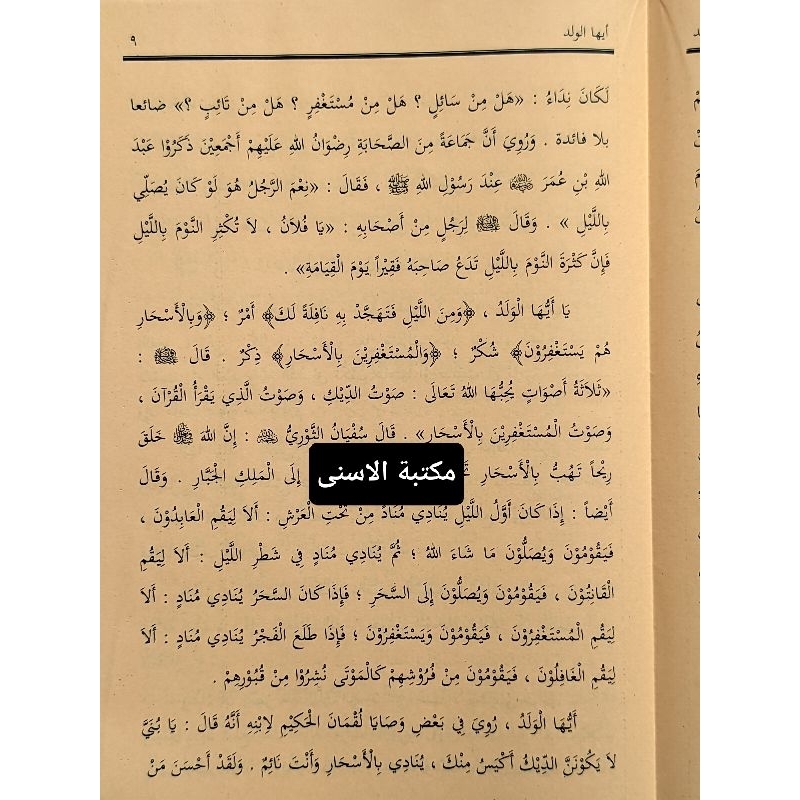 أيها الولد ٩
لَكَانَ نِدَاءُ : «هَلْ مِنْ سَائِلٍ ؟ هَلْ مِنْ مُسْتَغْفِرٍ ؟ هَلْ مِنْ تَائِبٍ ؟» ضائعا
بلا فائدة . وَرُوِيَ أَنَّ جَمَاعَةً مِنَ الصَّحَابَةِ رِضْوَانُ اللهِ عَلَيْهِمْ أَجْمَعِيْنَ ذَكَرُوْا عَبْدَ
اللهِ بْنِ عُمَرَ عِنْدَ رَسُوْلِ اللهِ ﷺ ، فَقَالَ : «نِعْمَ الرَّجُلُ هُوَ لَوْ كَانَ يُصَلِّي
بِاللَّيْلِ» . وَقَالَ ﷺ لِرَجُلٍ مِنْ أَصْحَابِهِ : «يَا فُلاَنُ ، لاَ تُكْثِرِ النَّوْمَ بِاللَّيْلِ
فَإِنَّ كَثْرَةَ النَّوْمِ بِاللَّيْلِ تَدَعُ صَاحِبَهُ فَقِيْرًا يَوْمَ الْقِيَامَةِ» .
يَا أَيُّهَا الْوَلَدُ ، ﴿وَمِنَ اللَّيْلِ فَتَهَجَّدْ بِهِ نَافِلَةً لَكَ﴾ أَمْرٌ ؛ ﴿وَبِالْأَسْحَارِ
هُمْ يَسْتَغْفِرُوْنَ﴾ شُكْرٌ ؛ ﴿وَالْمُسْتَغْفِرِيْنَ بِالْأَسْحَارِ﴾ ذِكْرٌ . قَالَ ﷺ :
«ثَلاَثَةُ أَصْوَاتٍ يُحِبُّهَا اللهُ تَعَالَى : صَوْتُ الدِّيْكِ ، وَصَوْتُ الَّذِي يَقْرَأُ الْقُرْآنَ ،
وَصَوْتُ الْمُسْتَغْفِرِيْنَ بِالْأَسْحَارِ» . قَالَ سُفْيَانُ الثَّوْرِيُّ : إِنَّ اللهَ خَلَقَ
رِيْحاً تَهُبُّ بِالْأَسْحَارِ إِلَى الْمَلِكِ الْجَبَّارِ . وَقَالَ
مكتبة الاسنى
أَيْضاً : إِذَا كَانَ أَوَّلُ اللَّيْلِ يُنَادِي مُنَادٌ مِنْ تَحْتِ الْعَرْشِ : أَلاَ لِيَقُمِ الْعَابِدُوْنَ ،
فَيَقُوْمُوْنَ وَيُصَلُّوْنَ مَا شَاءَ اللهُ ؛ ثُمَّ يُنَادِي مُنَادٍ فِي شَطْرِ اللَّيْلِ : أَلاَ لِيَقُمِ
الْقَانِتُوْنَ ، فَيَقُوْمُوْنَ وَيُصَلُّوْنَ إِلَى السَّحَرِ ؛ فَإِذَا كَانَ السَّحَرُ يُنَادِي مُنَادٍ : أَلاَ
لِيَقُمِ الْمُسْتَغْفِرُوْنَ ، فَيَقُوْمُوْنَ وَيَسْتَغْفِرُوْنَ ؛ فَإِذَا طَلَعَ الْفَجْرُ يُنَادِي مُنَادٍ : أَلاَ
لِيَقُمِ الْغَافِلُوْنَ ، فَيَقُوْمُوْنَ مِنْ فُرُوْشِهِمْ كَالْمَوْتَى نُشِرُوْا مِنْ قُبُوْرِهِمْ .
أَيُّهَا الْوَلَدُ ، رُوِيَ فِي بَعْضِ وَصَايَا لُقْمَانَ الْحَكِيْمِ لِابْنِهِ أَنَّهُ قَالَ : يَا بُنَيَّ
لاَ يَكُوْنَنَّ الدِّيْكُ أَكْيَسَ مِنْكَ ، يُنَادِي بِالْأَسْحَارِ وَأَنْتَ نَائِمٌ . وَلَقَدْ أَحْسَنَ مَنْ